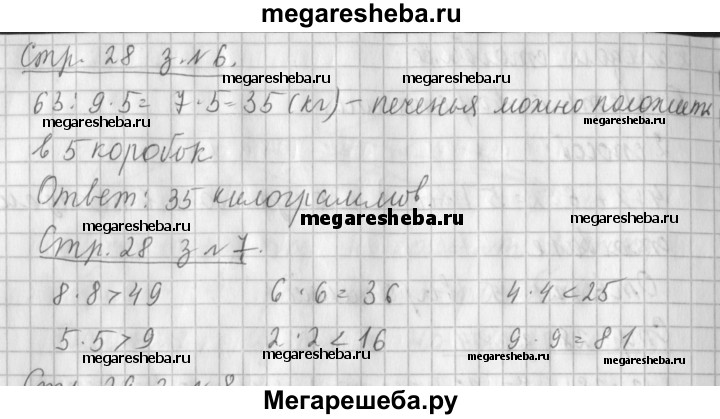 megaresheba.ru
Стр. 28 з. №6.
megaresheba.ru megaresheba.ru
63 : 9 · 5 = 7 · 5 = 35 (кг) – печенья можно положить
megaresheba.ru megaresheba.ru
в 5 коробок
Ответ: 35 килограммов.
megaresheba.ru megaresheba.ru megaresheba.ru
Стр. 28 з №7.
8 · 8 > 49 6 · 6 = 36 4 · 4 < 25
5 · 5 > 9 2 · 2 < 16 9 · 9 = 81
megaresheba.ru megaresheba.ru megaresheba.ru
Мегарешеба.ру